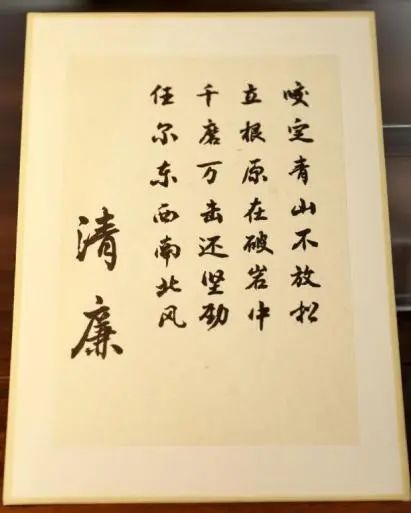 咬定青山不放松
立根原在破岩中
千磨万击还坚劲
任尔东西南北风
清廉